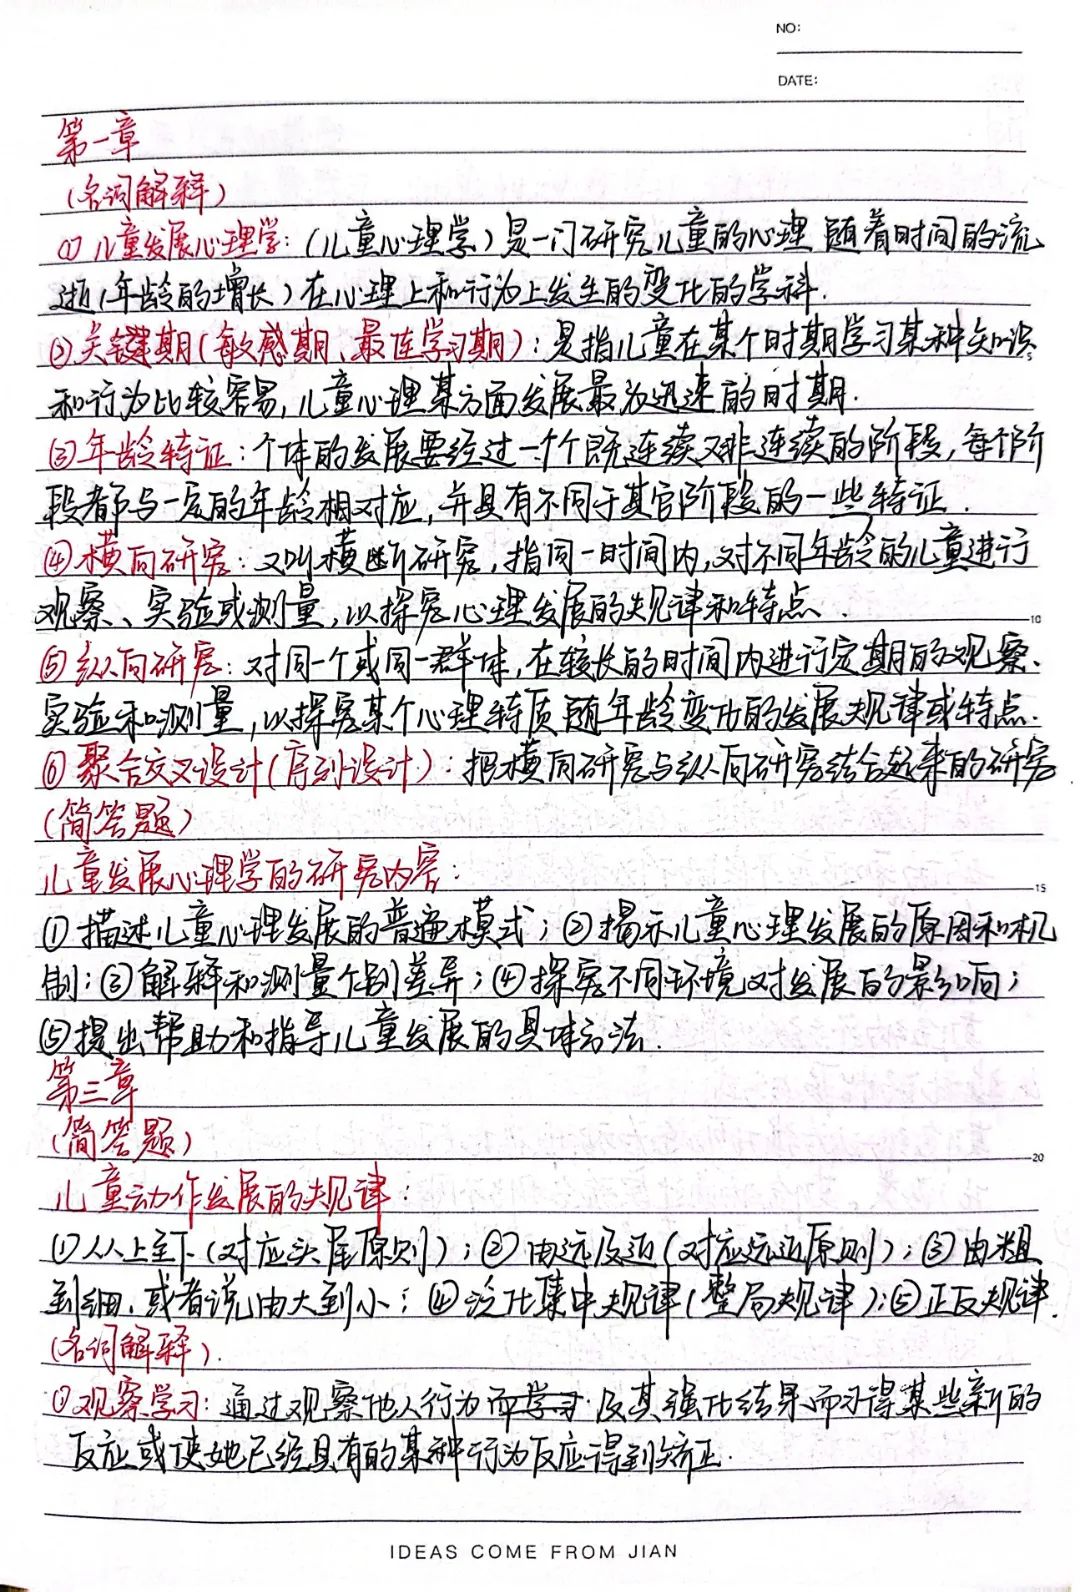 NO:
DATE:
第一章
(名词解释)
① 儿童发展心理学:(儿童心理学)是一门研究儿童的心理 随着时间的流
逝(年龄的增长)在心理上和行为上发生的变化的学科.
② 关键期(敏感期、最佳学习期):是指儿童在某个时期学习某种知识
和行为比较容易,儿童心理某方面发展最为迅速的时期.
③ 年龄特征:个体的发展要经过一个个既连续又非连续的阶段,每个阶
段都与一定的年龄相对应,并具有不同于其它阶段的一些特征.
④ 横向研究:又叫横断研究,指同一时间内,对不同年龄的儿童进行
观察、实验或测量,以探究心理发展的规律和特点.
10
⑤ 纵向研究:对同一个或同一群体,在较长的时间内进行定期的观察、
实验和测量,以探究某个心理特质随年龄变化的发展规律或特点.
⑥ 聚合交叉设计(序列设计):把横向研究与纵向研究结合起来的研究
(简答题)
儿童发展心理学的研究内容:
15
① 描述儿童心理发展的普遍模式;② 揭示儿童心理发展的原因和机
制;③ 解释和测量个别差异;④ 探究不同环境对发展的影响;
⑤ 提出帮助和指导儿童发展的具体方法.
第三章
(简答题)
20
儿童动作发展的规律:
① 从上至下(对应头尾原则);② 由远及近(对应远近原则);③ 由粗
到细,或者说由大到小;④ 泛化集中规律(整局规律);⑤ 正反规律.
(名词解释).
① 观察学习:通过观察他人行为而学习.及其强化结果而习得某些新的
反应或使她已经具有的某种行为反应得到矫正.
IDEAS COME FROM JIAN